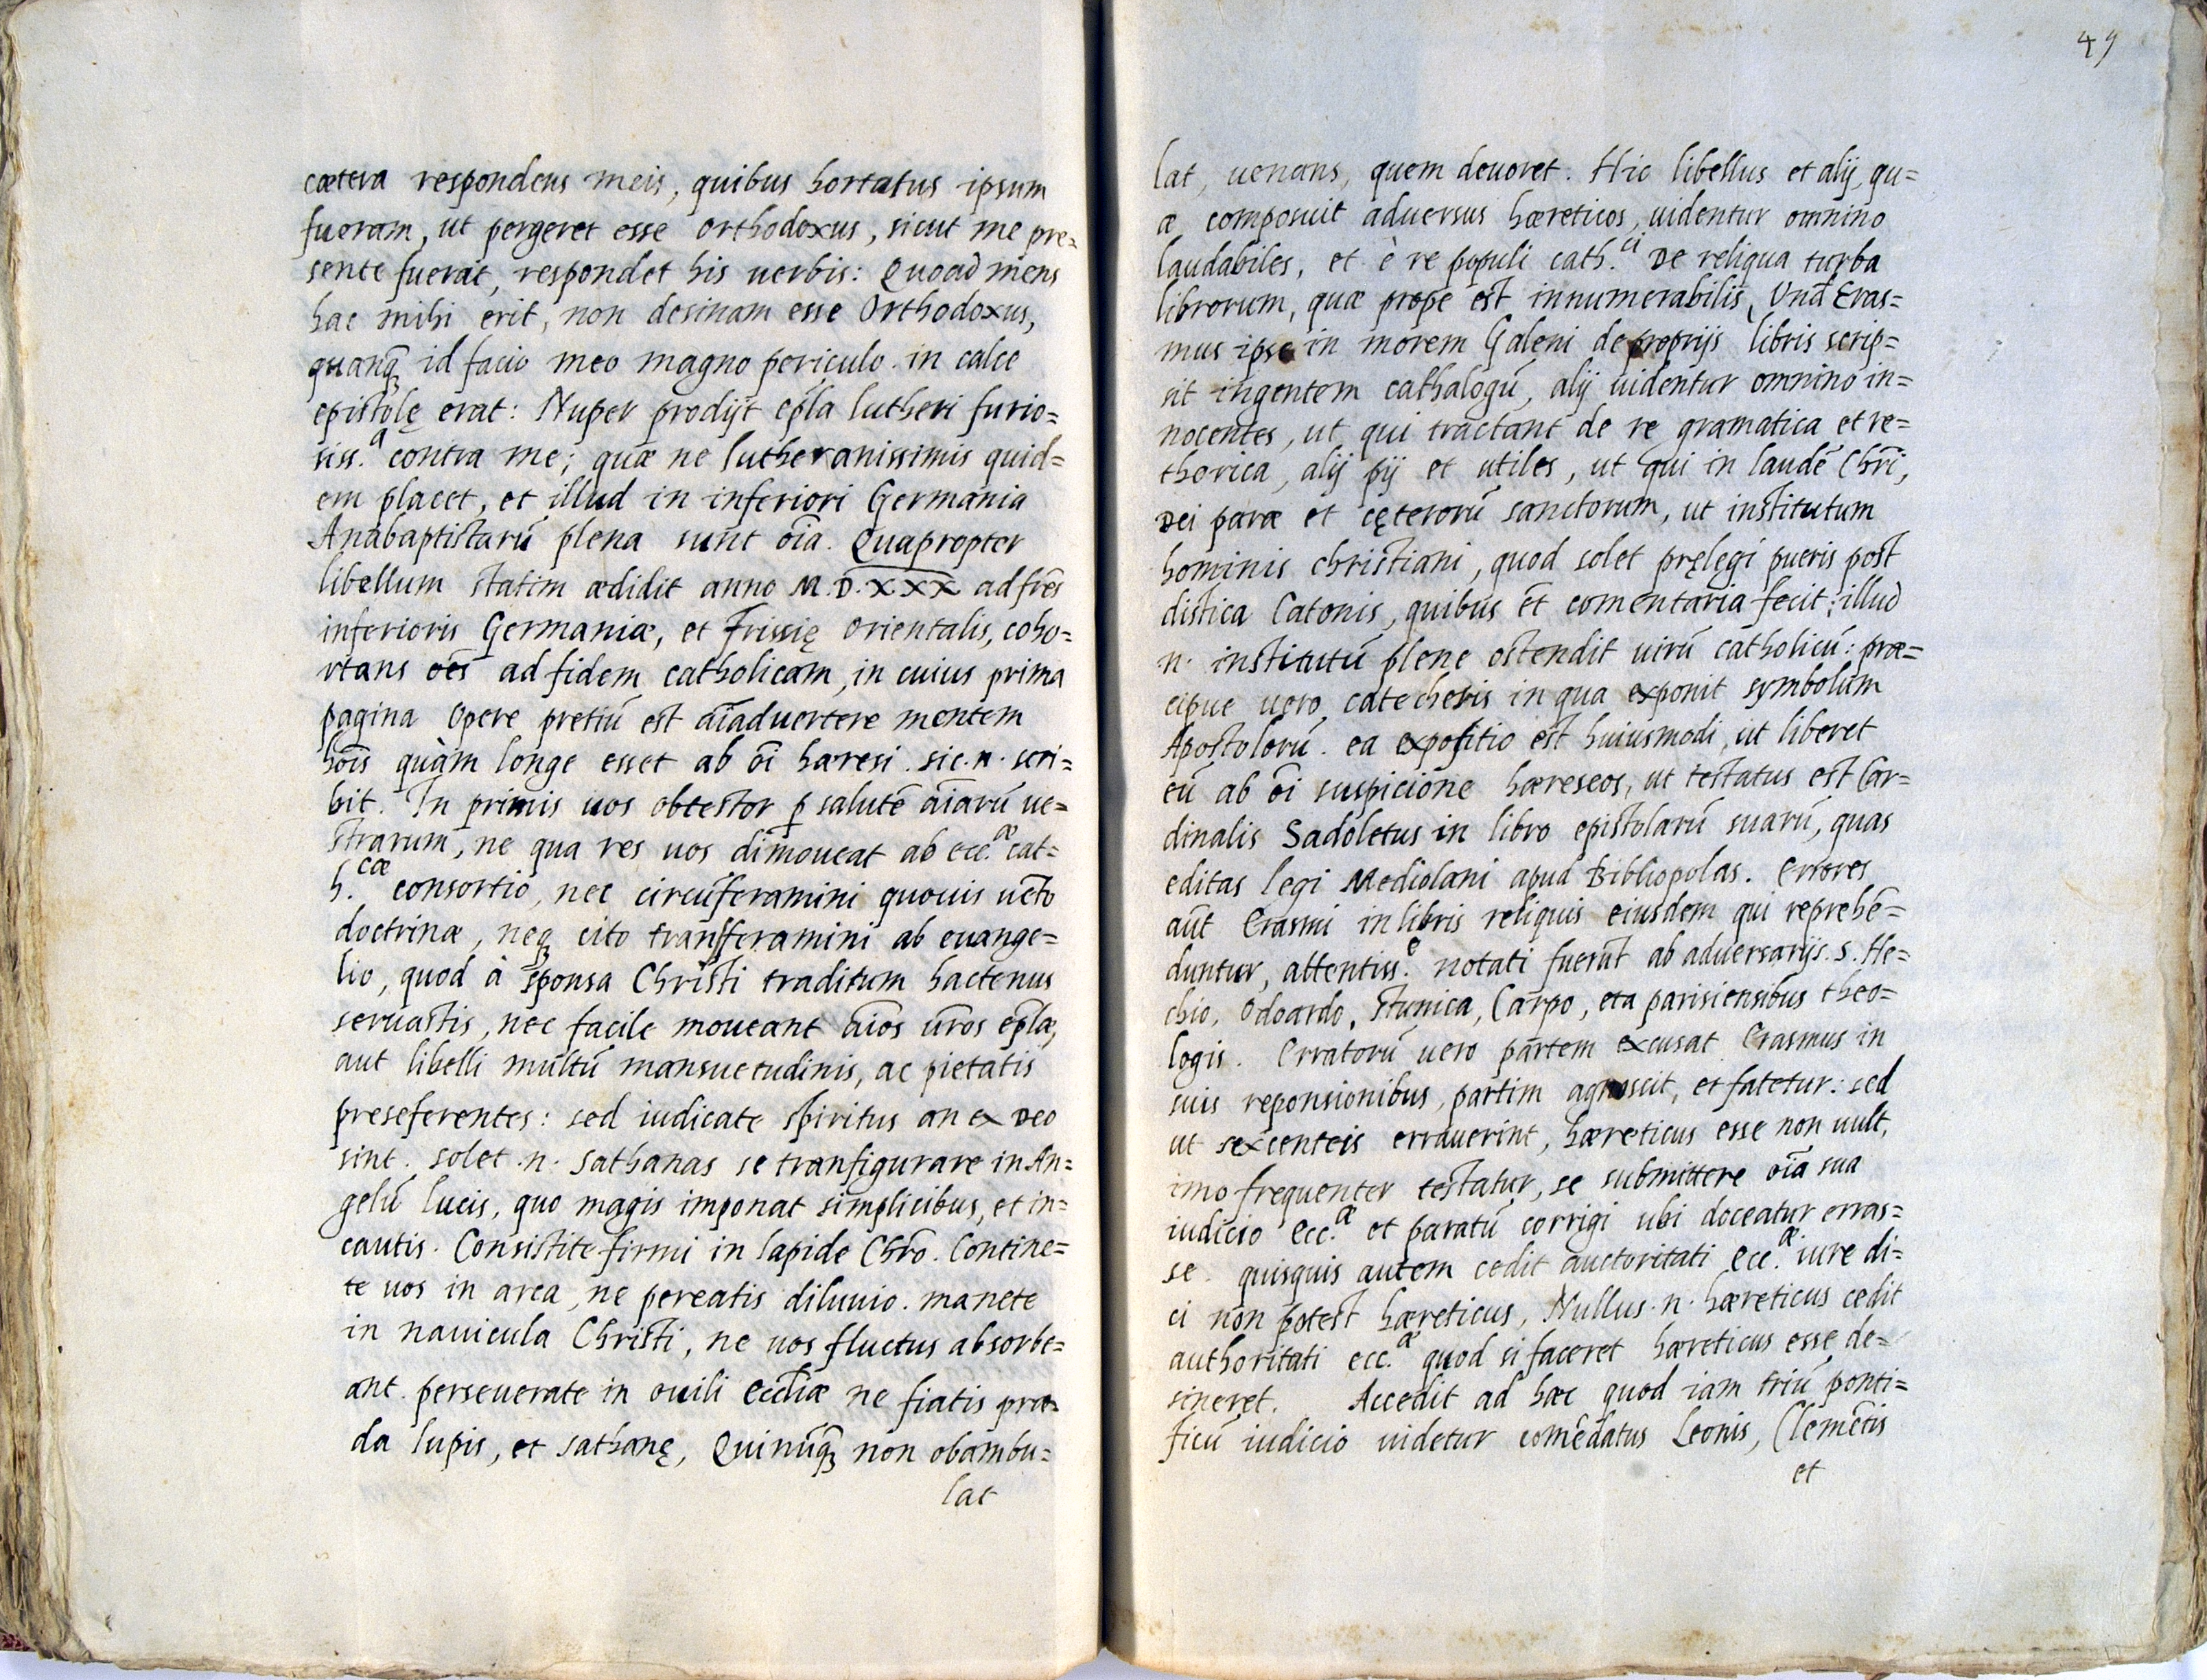 cætera respondens meis, quibus hortatus ipsum
fueram, ut pergeret esse orthodoxus, sicut me pre=
sente fuerat, respondet his uerbis: Quoad mens
hac mihi erit, non desinam esse Orthodoxus,
quanq̃ id facio meo magno periculo. in calce
epistolę erat: Nuper prodijt ep̃la lutheri furio=
siss.ᵃ contra me; quæ ne lutheranissimis quid=
em placet, et illud in inferiori Germania
Anabaptistarũ plena sunt oĩa. Quapropter
libellum statim ædidit anno M.D.XXX ad fr̃es
inferioris Germaniæ, et Frissię orientalis, coho=
rtans oẽs ad fidem catholicam, in cuius prima
pagina opere pretiũ est aĩaduertere mentem
hõis quàm longe esset ab oĩ hæresi. sic .n. scri=
bit. In primis uos obtestor p̱ salutẽ aĩarũ ue=
strarum, ne qua res uos dimoueat ab ecc.ᵃᵉ cat=
h.cæ consortio, nec circũferamini quouis uẽto
doctrinæ, neq̃ cito transferamini ab euange=
lio, quod à sponsa Christi traditum hactenus
seruastis, nec facile moueant aĩos ũros ep̃læ,
aut libelli multũ mansuetudinis, ac pietatis
preseferentes: sed iudicate spiritus an ex Deo
sint. solet .n. sathanas se tranfigurare in An=
gelũ lucis, quo magis imponat simplicibus, et in=
cautis. Consistite firmi in lapide Chr̃o. Contine=
te uos in arca, ne pereatis diluuio. manete
in nauicula Christi, ne uos fluctus absorbe=
ant. perseuerate in ouili eccl̃iæ ne fiatis præ=
da lupis, et sathanę, Quinũq̃ non obambu=
lat
49
lat, uenans, quem deuoret. Hic libellus et alij, qu=
æ composuit aduersus hæreticos, uidentur omnino
laudabiles, et è re populi cath.ci De reliqua turba
librorum, quæ prope est innumerabilis, Unã Eras=
mus ipse in morem Galeni de proprijs libris scrip=
sit ingentem cathalogũ, alij uidentur omnino in=
nocentes, ut qui tractant de re gramatica et re=
thorica, alij pij et utiles, ut qui in laudẽ Chr̃i,
Dei paræ et cęterorũ sanctorum, ut institutum
hominis christiani, quod solet pręlegi pueris post
distica Catonis, quibus ẽt comentaria fecit; illud
.n. institutũ plene ostendit uirũ catholicũ: præ=
cipue uero catechesis in qua exponit symbolum
Apostolorũ. ea expositio est huiusmodi, ut liberet
eũ ab oĩ suspicione hæreseos, ut testatus est Car=
dinalis Sadoletus in libro epistolarũ suarũ, quas
editas legi Mediolani apud Bibliopolas. Errores
aũt Erasmi in libris reliquis eiusdem qui reprehẽ=
duntur, attentiss.ᵉ notati fuerũt ab aduersarijs. s. He=
chio, Odoardo, Stunica, Carpo, et a parisiensibus theo=
logis. Erratorũ uero partem excusat Erasmus in
suis reponsionibus, partim agnoscit, et fatetur: sed
ut sexcenteis errauerint, hæreticus esse non uult,
imo frequenter testatur, se submittere oĩa sua
iudicio ecc.æ et paratũ corrigi ubi doceatur erras=
se. quisquis autem cedit auctoritati ecc.æ iure di=
ci non potest hæreticus, Nullus .n. hæreticus cedit
authoritati ecc.æ quod si faceret hæreticus esse de=
sineret. Accedit ad hæc quod iam triũ ponti=
ficũ iudicio uidetur comẽdatus Leonis, Clemẽtis
et